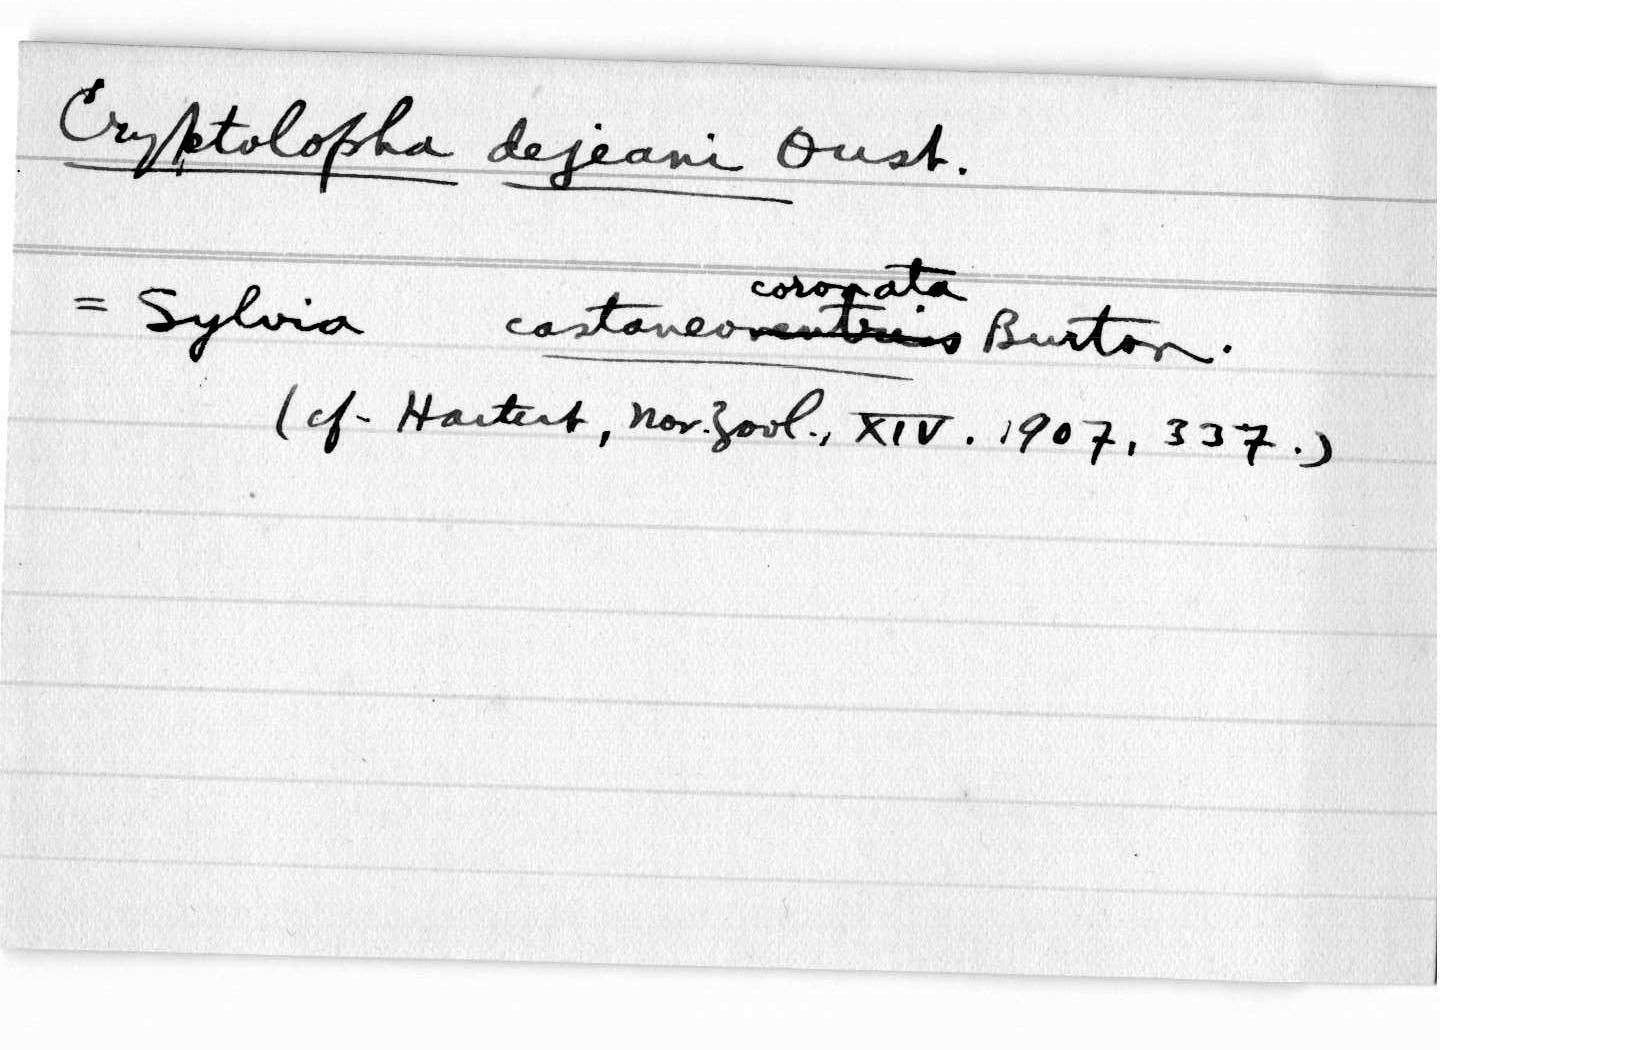 Cryptolopha dejeani Oust.
= Sylvia castaneocoronata Burton.
(cf. Hartert, Nov. Zool., XIV. 1907, 337.)